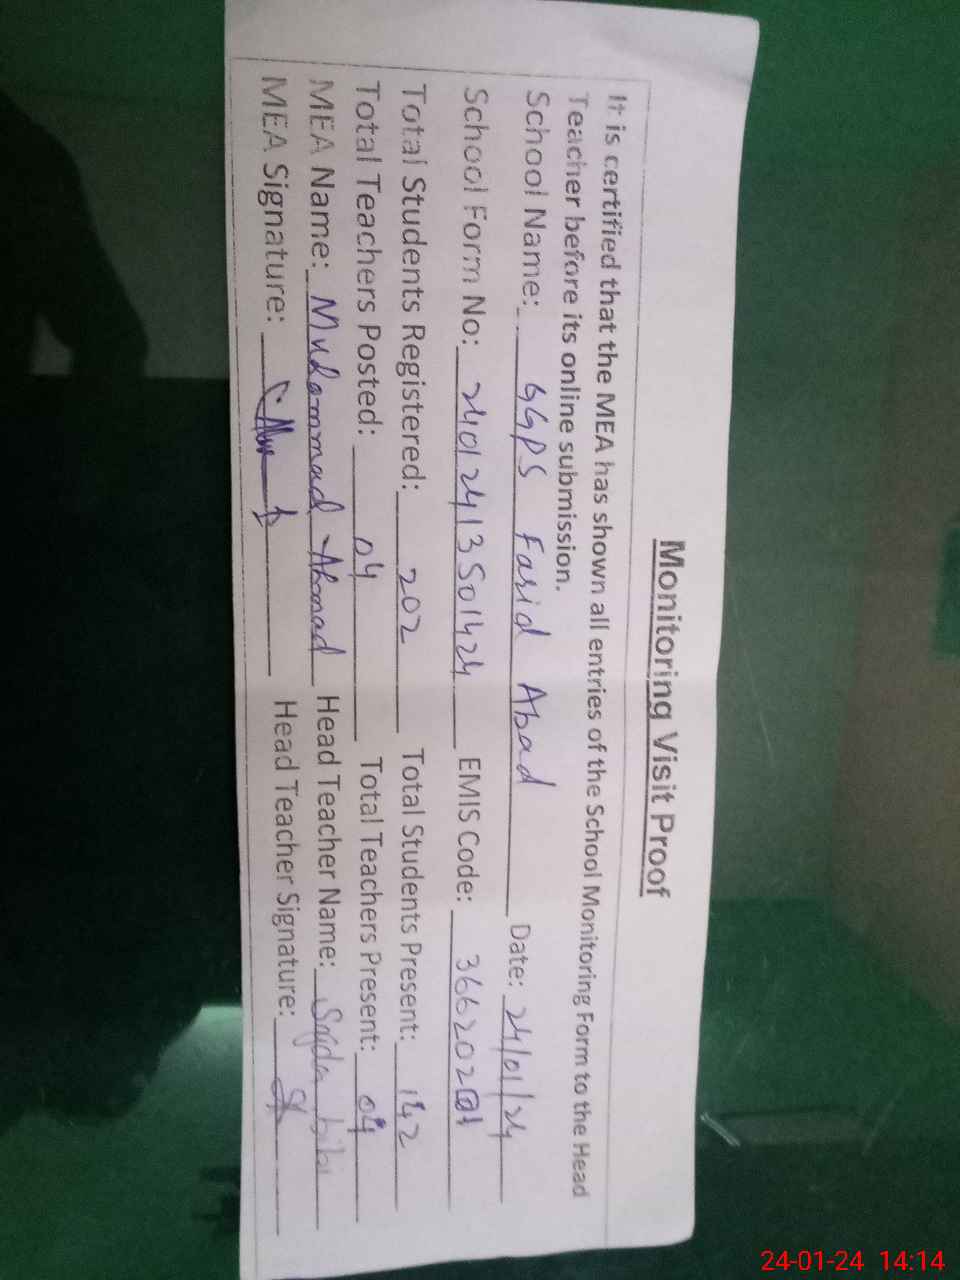 Monitoring Visit Proof
It is certified that the MEA has shown all entries of the School Monitoring Form to the Head
Teacher before its online submission.
School Name: GGPS Farid Abad Date: 24/01/24
School Form No: 24012413501424 EMIS Code: 366202
Total Students Registered: 202 Total Students Present: 142
Total Teachers Posted: 04 Total Teachers Present: 04
MEA Name: Muhammad Ahmad Head Teacher Name: Sajda bibi
MEA Signature: Head Teacher Signature:
24-01-24 14:14